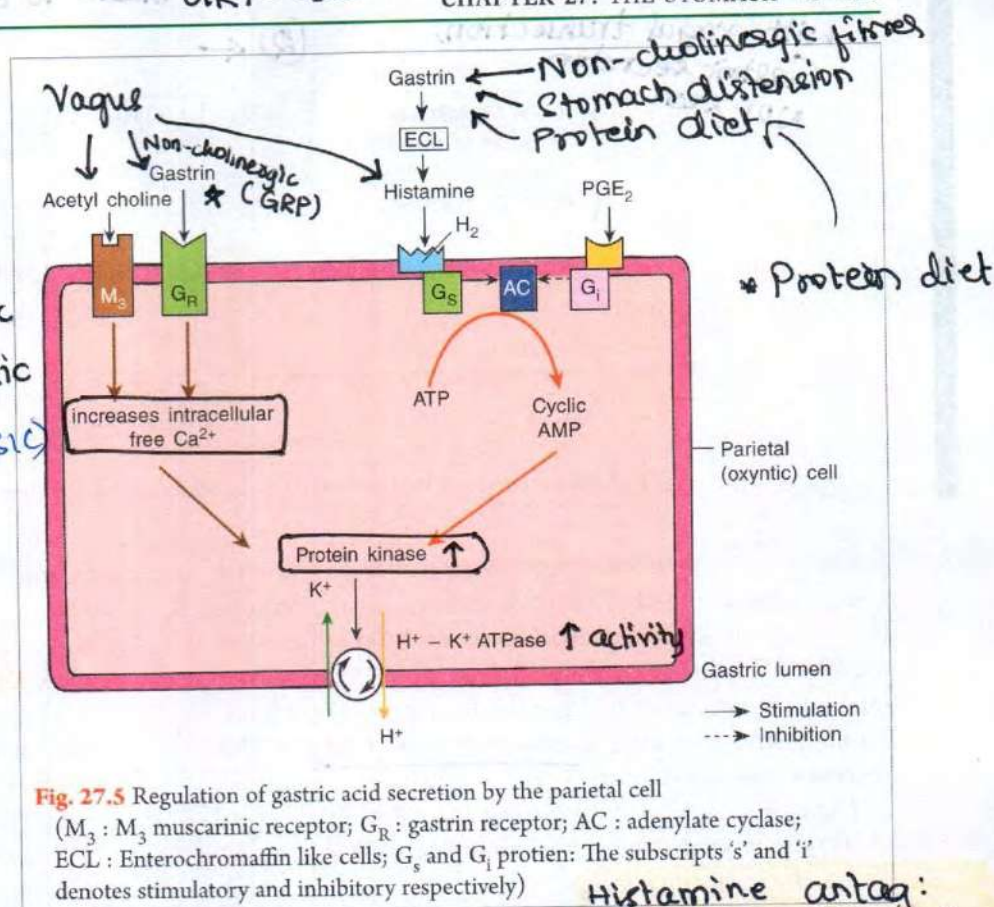 CHAPTER 27: THE STOMACH
Vagus
Non-cholinergic
Gastrin
* (GRP)
Acetyl choline
Gastrin
Non-cholinergic fibres
Stomach distension
Protein diet
ECL
Histamine
PGE2
H2
M3
GR
GS
AC
Gi
* Protein diet
increases intracellular
free Ca2+
ATP
Cyclic
AMP
Parietal
(oxyntic) cell
Protein kinase ↑
K+
H+ – K+ ATPase ↑ activity
H+
Gastric lumen
Stimulation
Inhibition
Fig. 27.5 Regulation of gastric acid secretion by the parietal cell
(M3 : M3 muscarinic receptor; GR : gastrin receptor; AC : adenylate cyclase;
ECL : Enterochromaffin like cells; Gs and Gi protien: The subscripts ‘s’ and ‘i’
denotes stimulatory and inhibitory respectively)
Histamine antag: